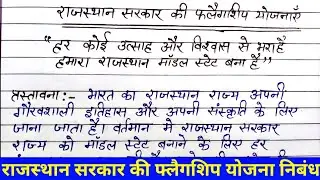 राजस्थान सरकार की फ्लैगशिप योजनाएँ
“हर कोई उत्साह और विश्वास से भरा है
हमारा राजस्थान मॉडल स्टेट बना है”
प्रस्तावना :- भारत का राजस्थान राज्य अपनी
गौरवशाली इतिहास और अपनी संस्कृति के लिए
जाना जाता है। वर्तमान में राजस्थान सरकार
राज्य को मॉडल स्टेट बनाने के लिए हर
राजस्थान सरकार की फ्लैगशिप योजना निबंध